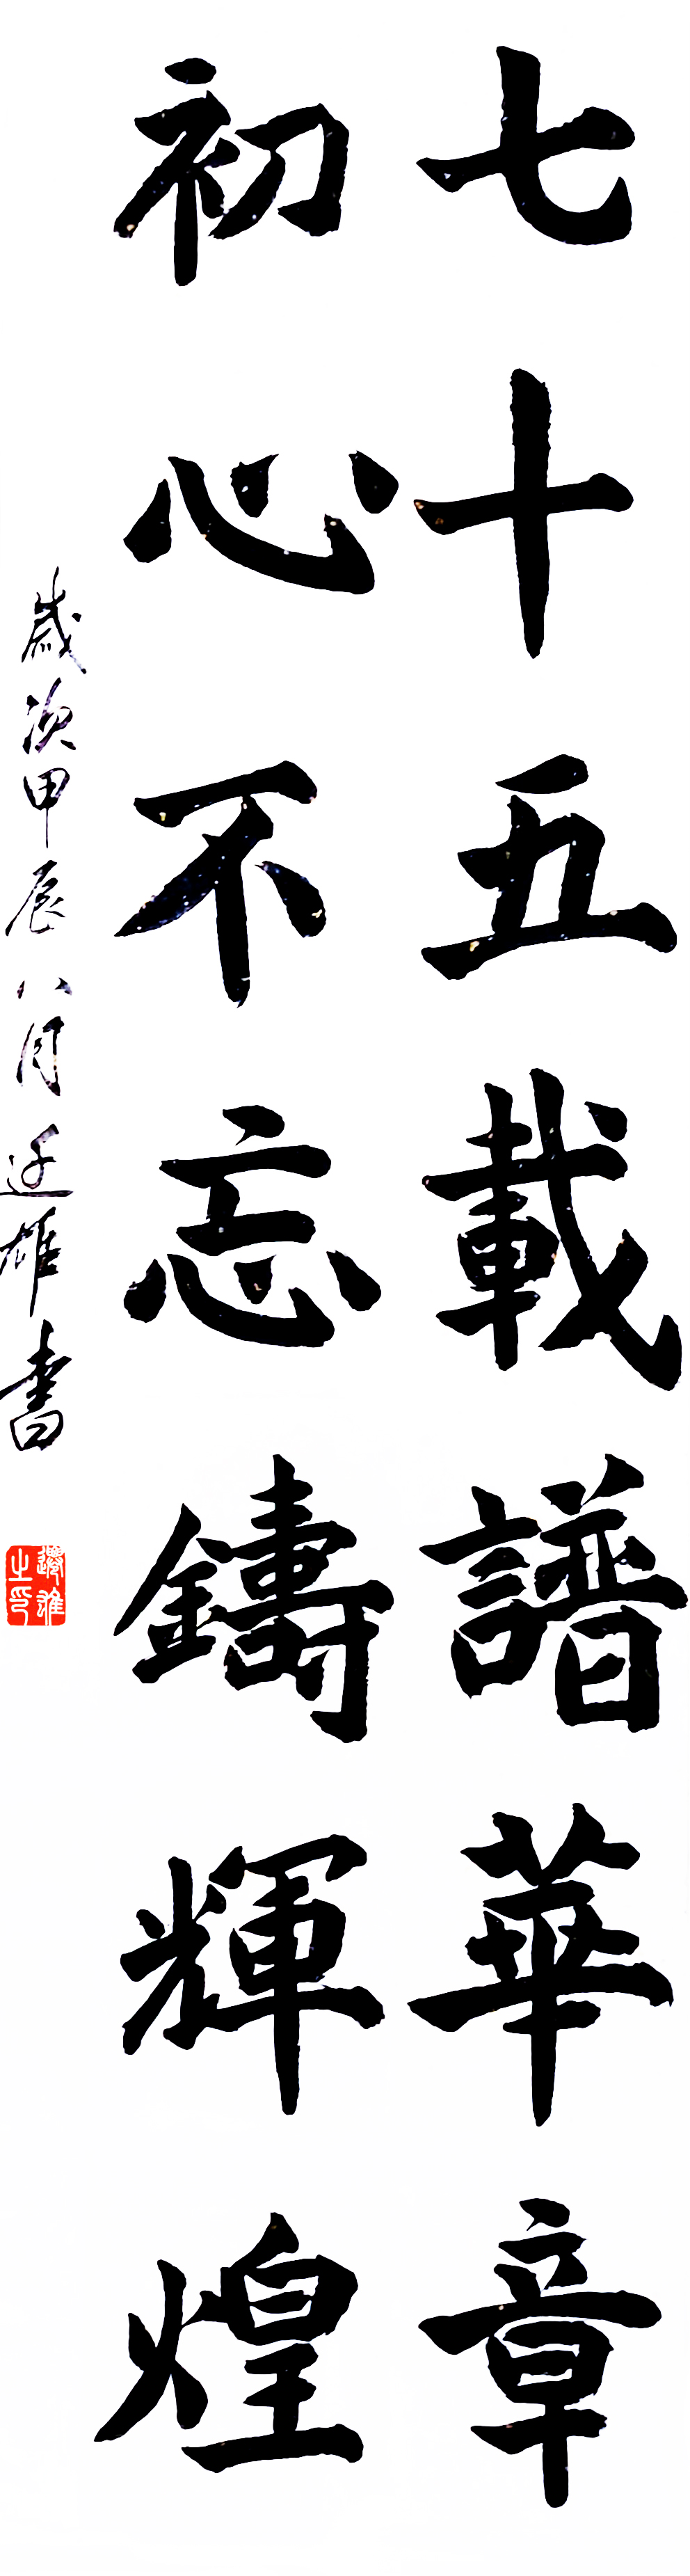 七十五載譜華章
初心不忘鑄輝煌
歲次甲辰八月廷雄書